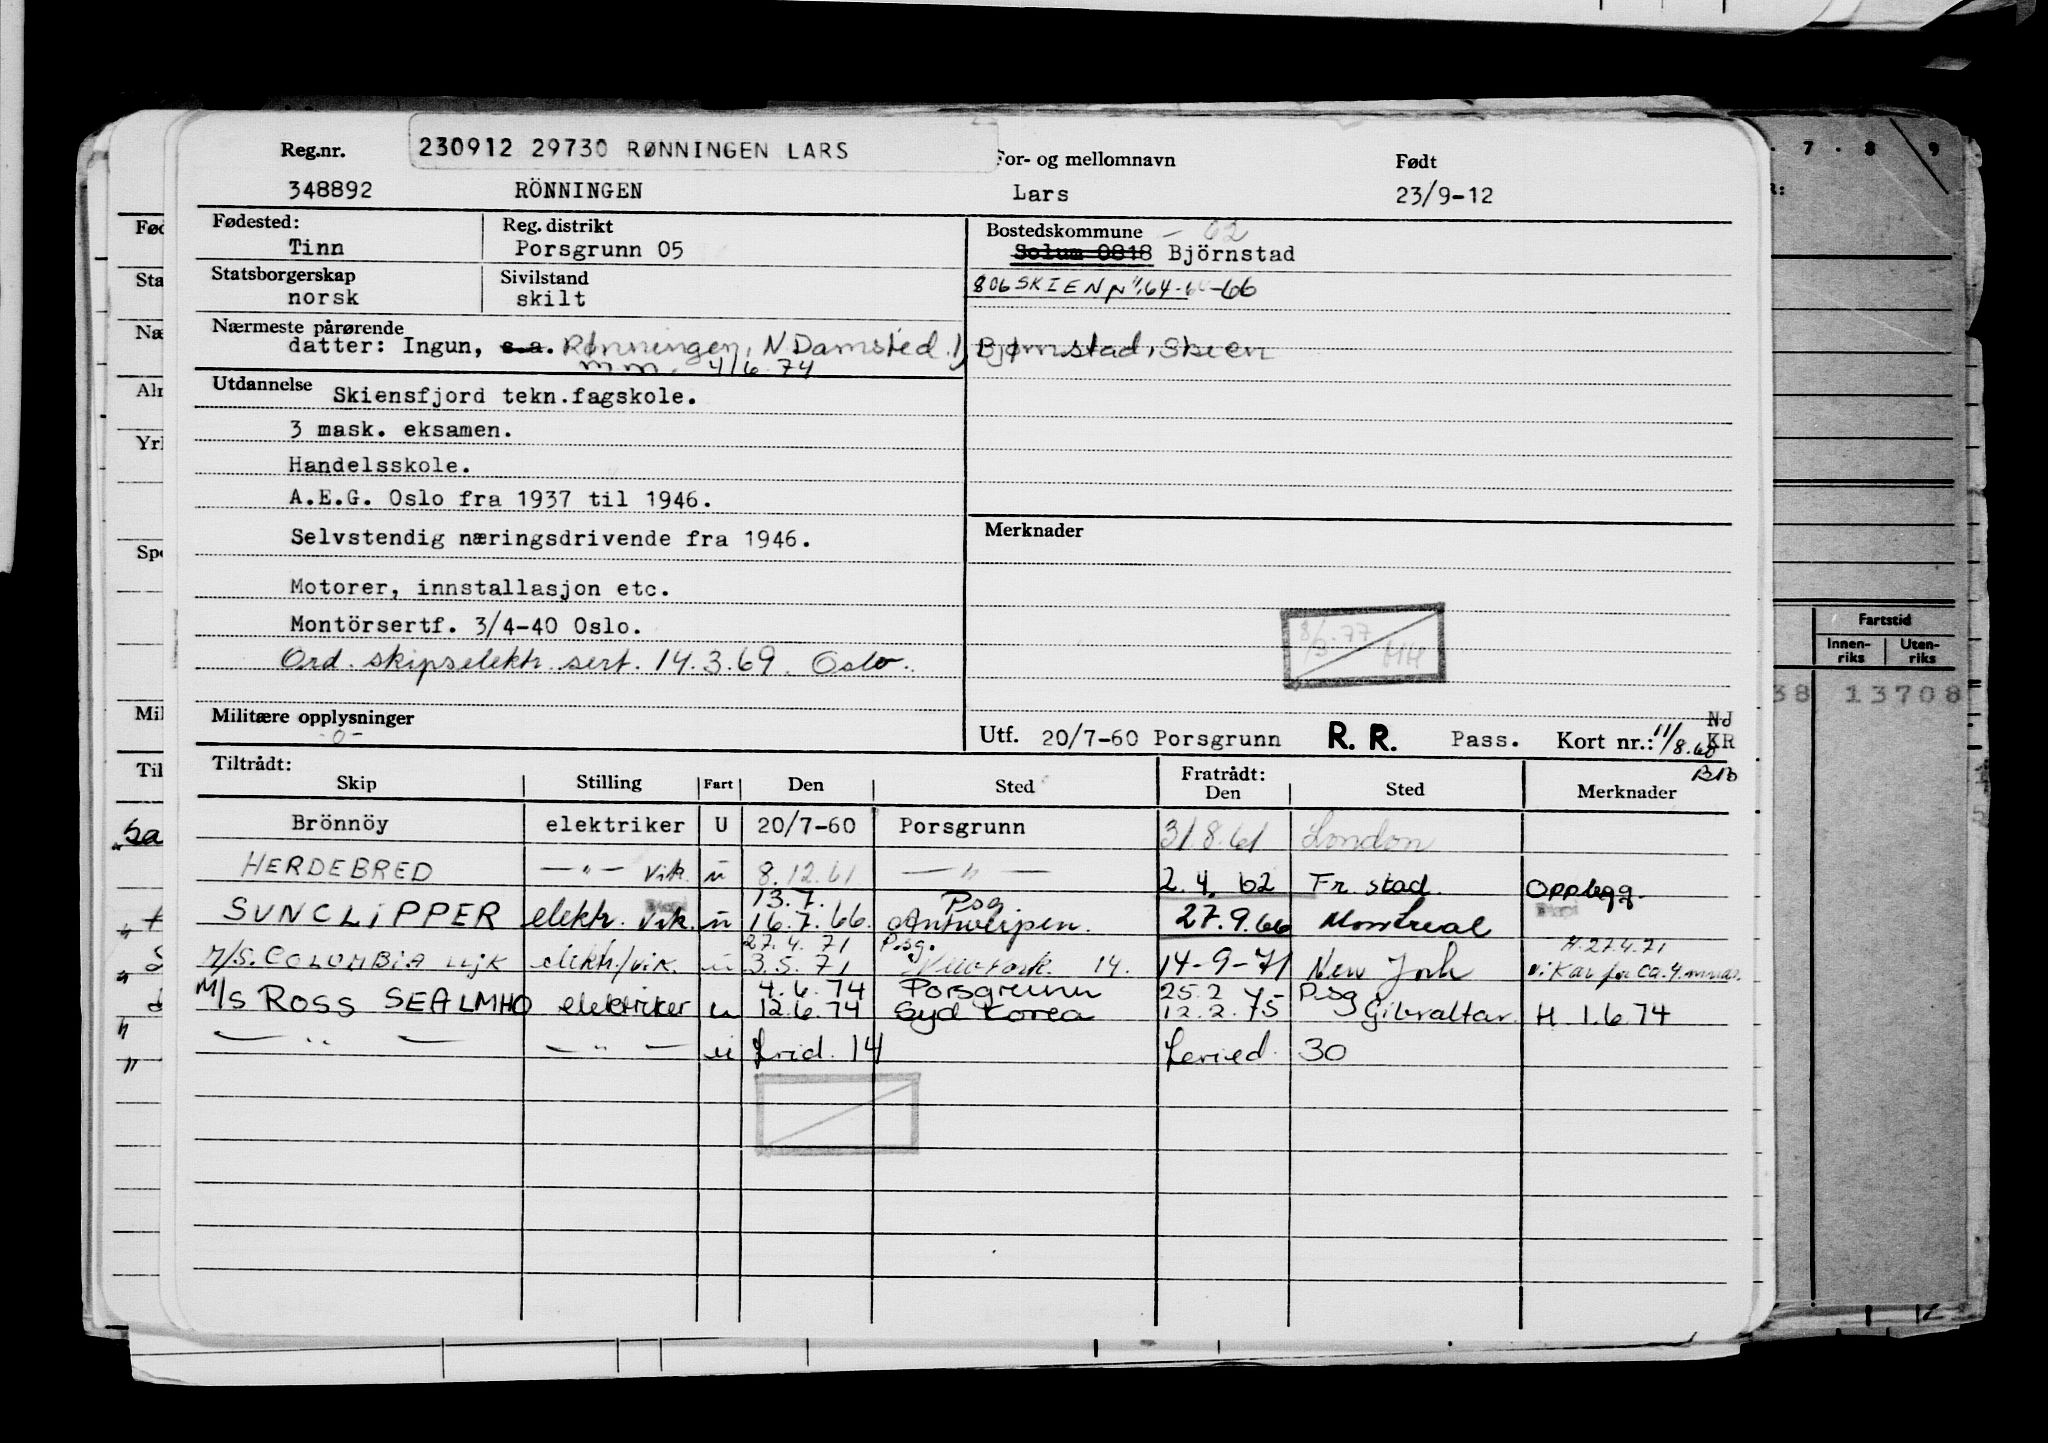 230912 29730 RØNNINGEN LARS
Reg.nr. For- og mellomnavn Født
348892 RÖNNINGEN Lars 23/9-12
Fødested: Reg. distrikt Bostedskommune — 62
Tinn Porsgrunn 05 Solum 0818 Björnstad
Statsborgerskap Sivilstand
norsk skilt
806 SKIEN 64- -66
Nærmeste pårørende
datter: Ingun, s.a. Rønningen, N. Damsted 1, Bjørnstad, Skien
4/6.74
Utdannelse Skiensfjord tekn.fagskole.
3 mask. eksamen.
Handelsskole.
A.E.G. Oslo fra 1937 til 1946.
Selvstendig næringsdrivende fra 1946.
Motorer, innstallasjon etc.
Montörsertf. 3/4-40 Oslo.
Ord. skipselektr. sert. 14.3.69. Oslo.
Merknader
8/3-77 HH
Militære opplysninger
-0-
Utf. 20/7-60 Porsgrunn R. R. Pass. Kort nr.: 11/8.60 NJ
KR
Tiltrådt: Fratrådt:
Skip Stilling Fart Den Sted Den Sted Merknader
Brönnöy elektriker U 20/7-60 Porsgrunn 31.8.61 London
HERDEBRED —"— vik. u 8.12.61 —"— 2.4.62 Fr.stad. Opplegg.
13.7. Psg
SUNCLIPPER elektr. vik. u 16.7.66. Antwerpen. 27.9.66 Montreal
27.4.71 P.sg. H.27.4.71
M/S. COLUMBIA elektr/vik. u 3.5.71 14. 14-9-71 New York vikar for ca. 4 mnd.
4.6.74 Porsgrunn 25.2 Psg
M/S ROSS SEA LMHO elektriker u 12.6.74 Syd Korea 12.2.75 Gibraltar. H 1.6.74
—"— —"— u Frid. 14 Feried. 30
7 . 8 . 9
Fartstid
Innen-
riks Uten-
riks
38 13708
Fød
Sta
Næ
Utd
Mil
Til